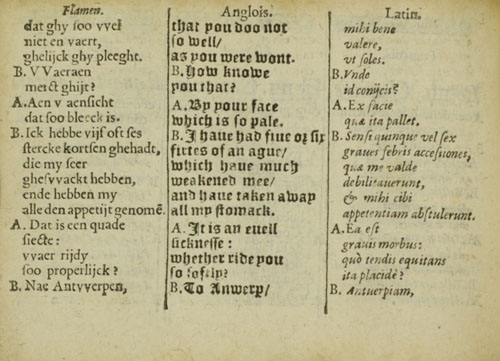 Flamen.
dat ghy soo vvel
niet en vaert,
ghelijck ghy pleeght.
B. VVaeraen
merct ghijt?
A. Aen v aensicht
dat soo bleeck is.
B. Ick hebbe vijf oft ses
stercke kortsen ghehadt,
die my seer
ghesvvackt hebben,
ende hebben my
alle den appetijt genomē.
A. Dat is een quade
siecte:
vvaer rijdy
soo properlijck?
B. Nae Antvverpen,
Anglois.
that you doo not
so well/
as you were wont.
B. How knowe
you that?
A. By your face
which is so pale.
B. I haue had fiue oꝛ six
fittes of an ague/
which haue much
weakened mee/
and haue taken away
all my stomack.
A. It is an euell
sicknesse:
whether ride you
so softly?
B. To Anwerp/
Latin.
mihi bene
valere,
vt soles.
B. Vnde
id conijcis?
A. Ex facie
quæ ita pallet.
B. Sensi quinque vel sex
graues febris accessiones,
quæ me valde
debilitauerunt,
& mihi cibi
appetentiam abstulerunt.
A. Ea est
grauis morbus:
quò tendis equitans
ita placidè?
B. Antuerpiam,